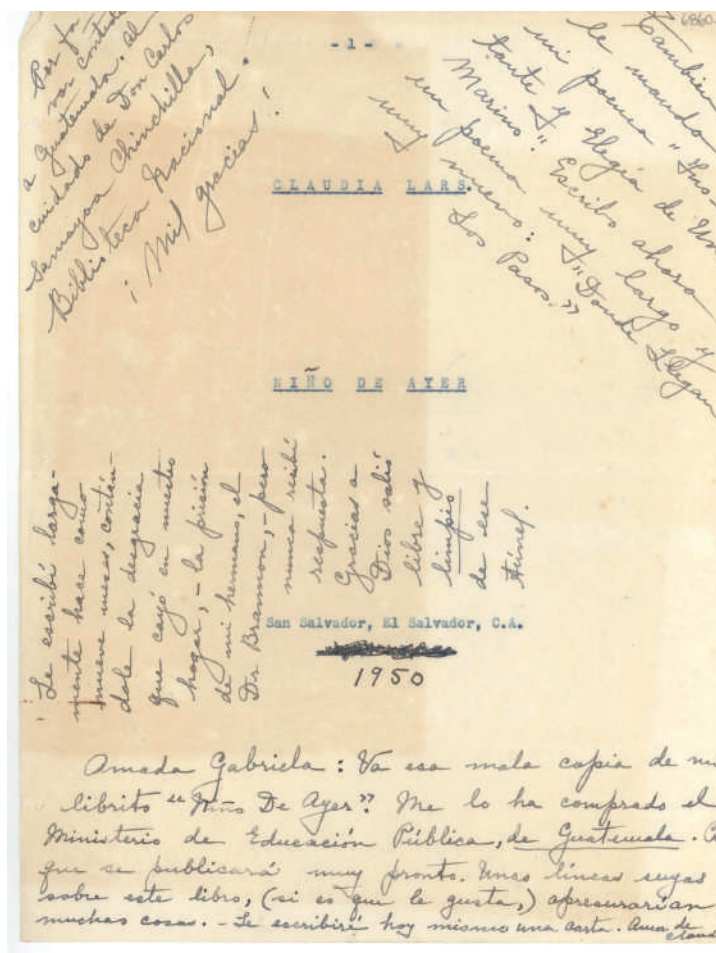 6860
- 1 -
Por fa-
vor contésteme
a Guatemala. Al
cuidado de Don Carlos
Samayoa Chinchilla,
Biblioteca Nacional.
¡Mil gracias!
También
le mando
mi poema "Ins-
tante y Elegía de Un
Marino". Escribo ahora
un poema muy largo y
muy nuevo: "Donde Llegan
Los Pasos."
CLAUDIA LARS.
NIÑO DE AYER
Le escribí larga-
mente hace como
nueve meses, contán-
dole la desgracia
que cayó en nuestro
hogar, - la prisión
de mi hermano, el
Dr Brannon, - pero
nunca recibí
respuesta.
Gracias a
Dios salió
libre y
limpio
de ese
túnel.
San Salvador, El Salvador, C.A.
1950
Amada Gabriela: Va esa mala copia de mi
librito "Niño De Ayer". Me lo ha comprado el
Ministerio de Educación Pública, de Guatemala.
que se publicará muy pronto. Unas líneas suyas
sobre este libro, (si es que le gusta,) apresurarían
muchas cosas. - Le escribiré hoy mismo una carta.